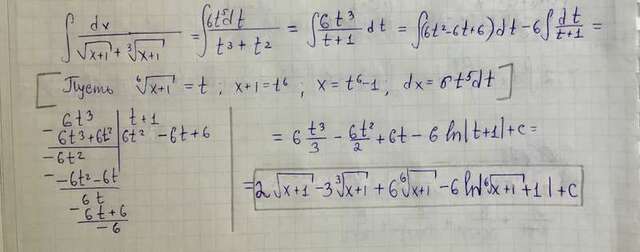 ∫ dx / (√(x+1) + ∛(x+1)) = ∫ 6t⁵dt / (t³ + t²) = ∫ 6t³ / (t+1) dt = ∫(6t²-6t+6)dt - 6∫ dt / (t+1) =
[Пусть ⁶√(x+1) = t ; x+1 = t⁶ ; x = t⁶-1 , dx = 6t⁵dt]
-6t³ | t+1
6t³+6t² | 6t² -6t+6
-6t²
--6t²-6t
6t
-6t+6
-6
= 6 t³/3 - 6t²/2 + 6t - 6 ln|t+1| + c =
= 2√(x+1) - 3∛(x+1) + 6⁶√(x+1) - 6 ln|⁶√(x+1) + 1| + c